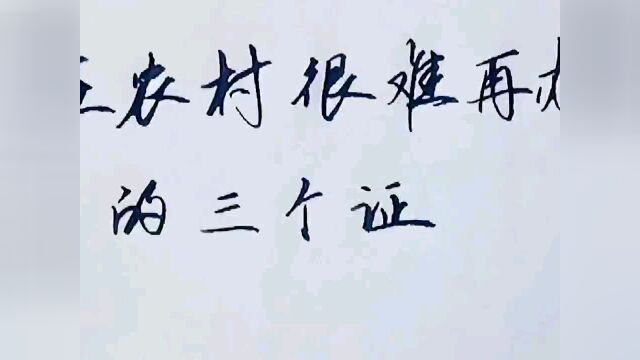 农村很难再
的三个证